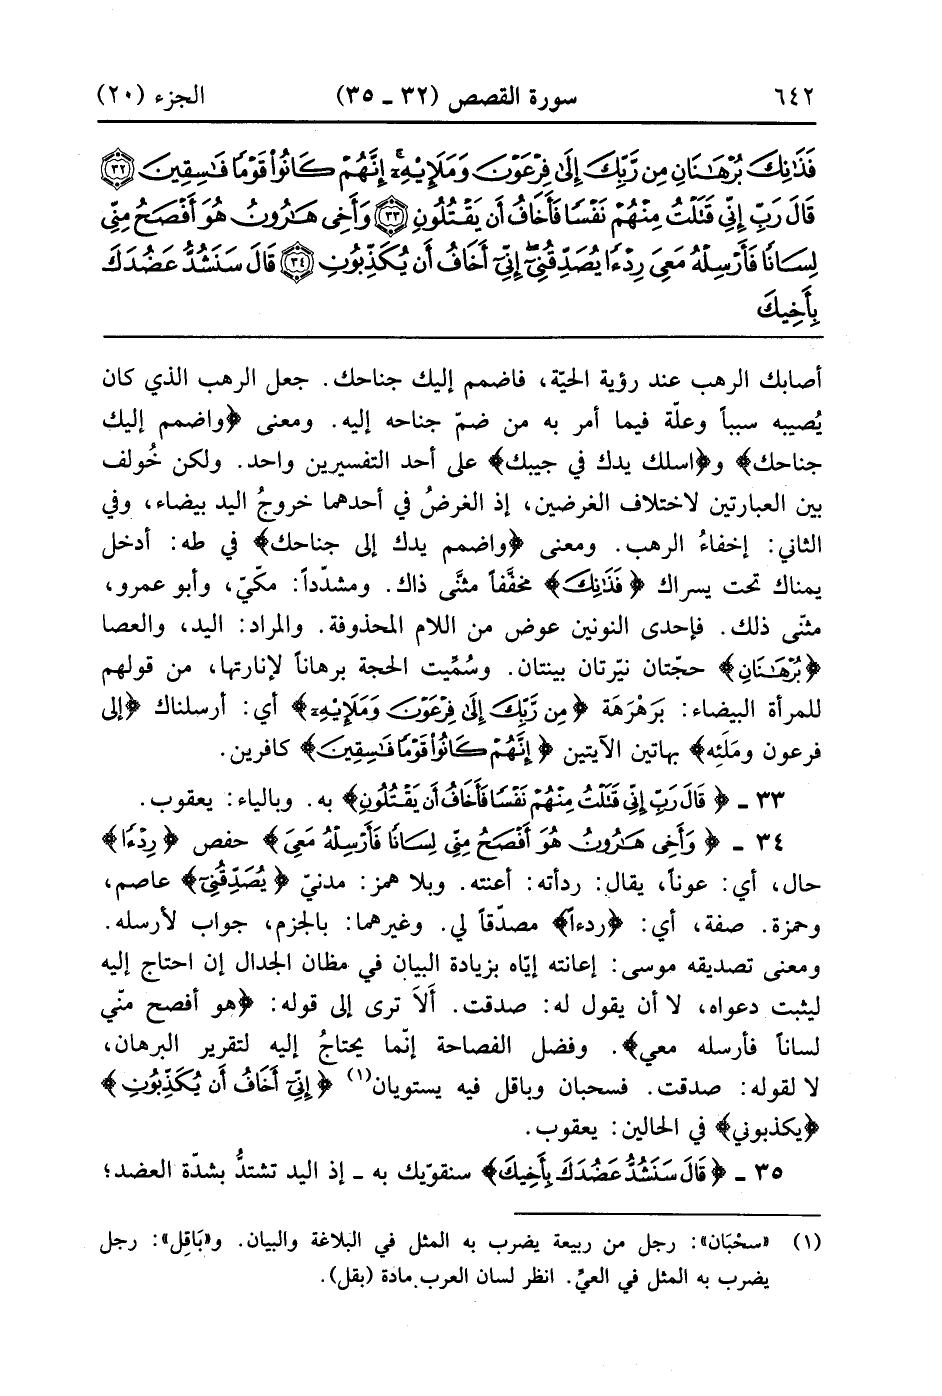 ٦٤٢ سورة القصص (٣٢ ـ ٣٥) الجزء (٢٠)
فَذَٰنِكَ بُرْهَـٰنَانِ مِن رَّبِّكَ إِلَىٰ فِرْعَوْنَ وَمَلَإِيْهِۦٓ إِنَّهُمْ كَانُوا۟ قَوْمًا فَـٰسِقِينَ ۝٣٢
قَالَ رَبِّ إِنِّى قَتَلْتُ مِنْهُمْ نَفْسًا فَأَخَافُ أَن يَقْتُلُونِ ۝٣٣ وَأَخِى هَـٰرُونُ هُوَ أَفْصَحُ مِنِّى
لِسَانًا فَأَرْسِلْهُ مَعِىَ رِدْءًا يُصَدِّقُنِىٓ إِنِّىٓ أَخَافُ أَن يُكَذِّبُونِ ۝٣٤ قَالَ سَنَشُدُّ عَضُدَكَ
بِأَخِيكَ
أصابك الرهب عند رؤية الحيّة، فاضمم إليك جناحك. جعل الرهب الذي كان
يُصيبه سبباً وعلّة فيما أمر به من ضمّ جناحه إليه. ومعنى ﴿واضمم إليك
جناحك﴾ و﴿اسلك يدك في جيبك﴾ على أحد التفسيرين واحد. ولكن خُولف
بين العبارتين لاختلاف الغرضين، إذ الغرضُ في أحدهما خروجُ اليد بيضاء، وفي
الثاني: إخفاءُ الرهب. ومعنى ﴿واضمم يدك إلى جناحك﴾ في طه: أدخل
يمناك تحت يسراك ﴿فَذَٰنِكَ﴾ مخفَّفاً مثنَّى ذاك. ومشدّداً: مكيّ، وأبو عمرو،
مثنّى ذلك. فإحدى النونين عوض من اللام المحذوفة. والمراد: اليد، والعصا
﴿بُرْهَـٰنَانِ﴾ حجّتان نيّرتان بينتان. وسُمِّيت الحجة برهاناً لإنارتها، من قولهم
للمرأة البيضاء: بَرَهْرَهَة ﴿مِن رَّبِّكَ إِلَىٰ فِرْعَوْنَ وَمَلَإِيْهِۦٓ﴾ أي: أرسلناك ﴿إلى
فرعون ومَلَئِه﴾ بهاتين الآيتين ﴿إِنَّهُمْ كَانُوا۟ قَوْمًا فَـٰسِقِينَ﴾ كافرين.
٣٣ ـ ﴿قَالَ رَبِّ إِنِّى قَتَلْتُ مِنْهُمْ نَفْسًا فَأَخَافُ أَن يَقْتُلُونِ﴾ به. وبالياء: يعقوب.
٣٤ ـ ﴿وَأَخِى هَـٰرُونُ هُوَ أَفْصَحُ مِنِّى لِسَانًا فَأَرْسِلْهُ مَعِىَ﴾ حفص ﴿رِدْءًا﴾
حال، أي: عوناً، يقال: ردأته: أعنته. وبلا همز: مدنيّ ﴿يُصَدِّقُنِىٓ﴾ عاصم،
وحمزة. صفة، أي: ﴿ردءاً﴾ مصدّقاً لي. وغيرهما: بالجزم، جواب لأرسله.
ومعنى تصديقه موسى: إعانته إيّاه بزيادة البيان في مظان الجدال إن احتاج إليه
ليثبت دعواه، لا أن يقول له: صدقت. أَلاَ ترى إلى قوله: ﴿هو أفصح منّي
لساناً فأرسله معي﴾. وفضل الفصاحة إنّما يحتاجُ إليه لتقرير البرهان،
لا لقوله: صدقت. فسحبان وباقل فيه يستويان(١) ﴿إِنِّىٓ أَخَافُ أَن يُكَذِّبُونِ﴾
﴿يكذبوني﴾ في الحالين: يعقوب.
٣٥ ـ ﴿قَالَ سَنَشُدُّ عَضُدَكَ بِأَخِيكَ﴾ سنقوّيك به ـ إذ اليد تشتدُّ بشدّة العضد؛
(١) «سحْبَان»: رجل من ربيعة يضرب به المثل في البلاغة والبيان. و«بَاقِل»: رجل
يضرب به المثل في العيِّ. انظر لسان العرب مادة (بقل).